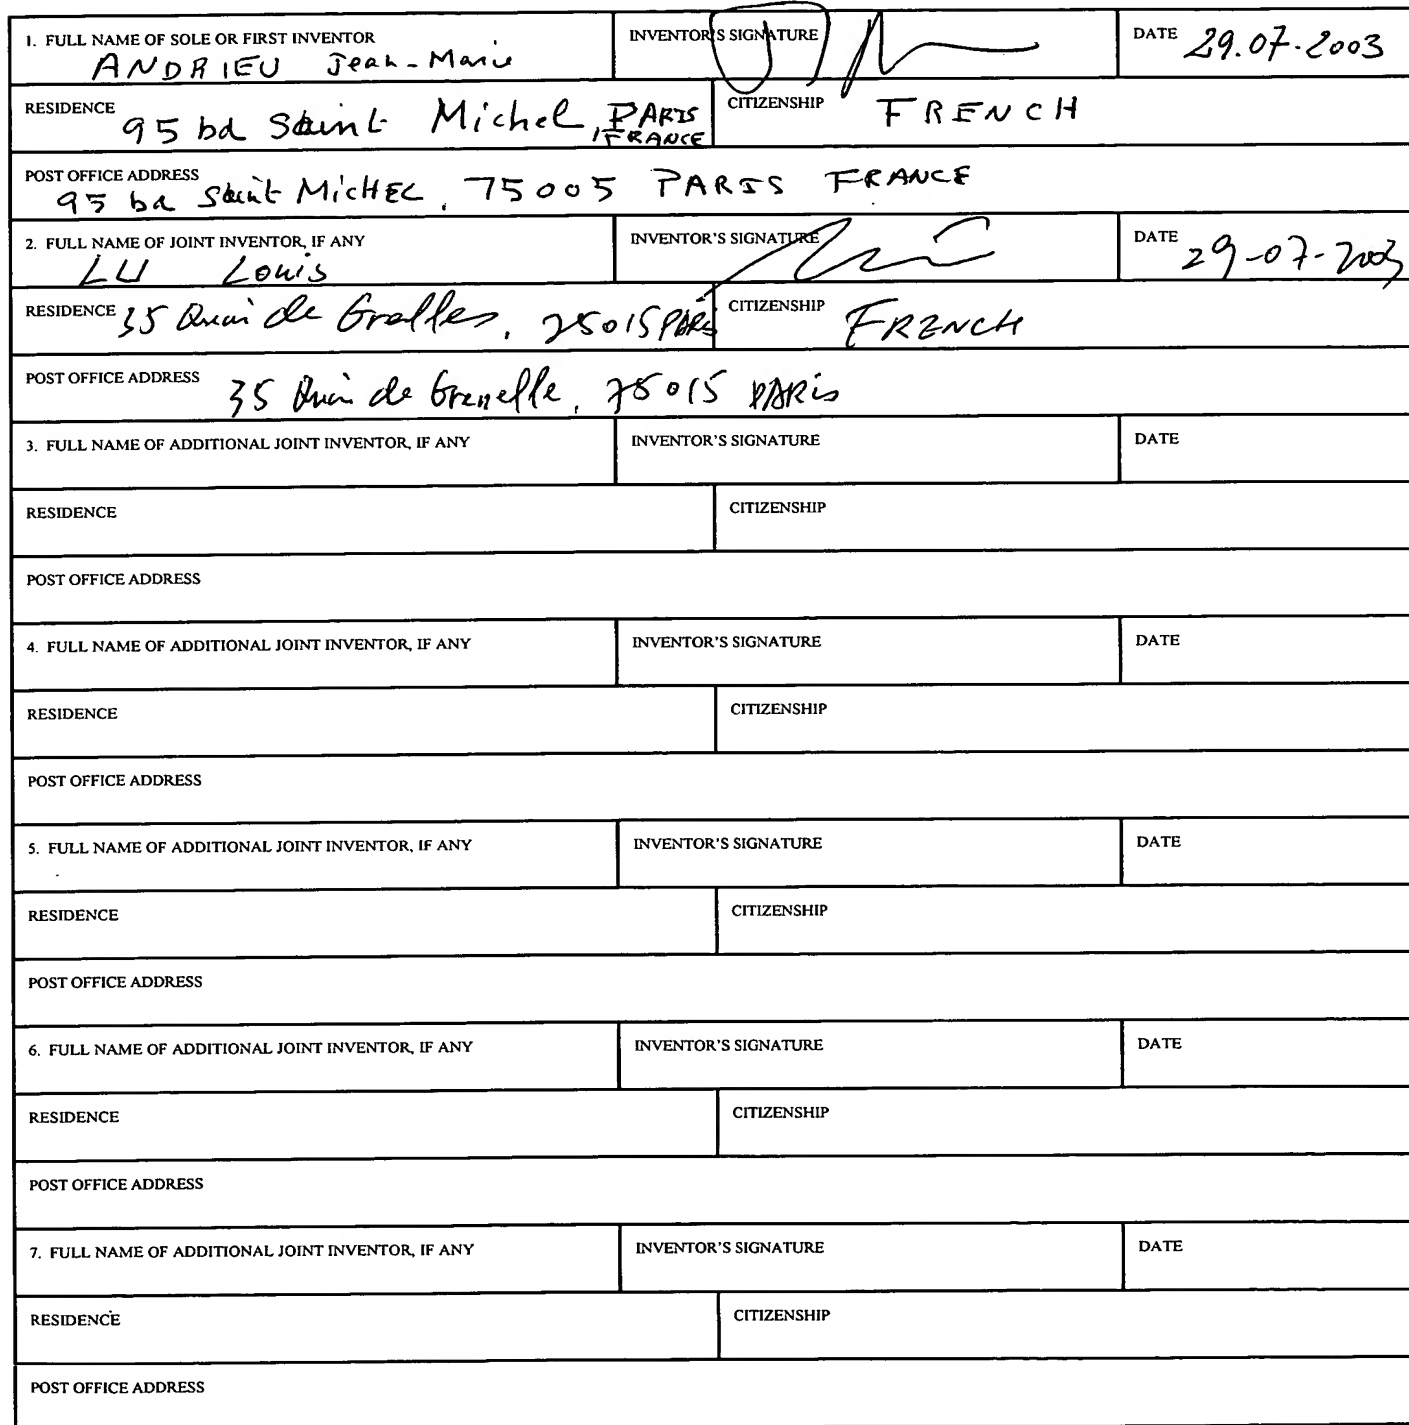 1. FULL NAME OF SOLE OR FIRST INVENTOR INVENTOR'S SIGNATURE DATE 29.07.2003
ANDRIEU Jean-Marie
RESIDENCE 95 bd Saint Michel, PARIS CITIZENSHIP FRENCH
FRANCE
POST OFFICE ADDRESS
95 bd Saint MICHEL, 75005 PARIS FRANCE
2. FULL NAME OF JOINT INVENTOR, IF ANY INVENTOR'S SIGNATURE DATE 29-07-2003
LU Louis
RESIDENCE 35 Quai de , 75015 PARIS CITIZENSHIP FRENCH
POST OFFICE ADDRESS 35 Quai de Grenelle, 75015 PARis
3. FULL NAME OF ADDITIONAL JOINT INVENTOR, IF ANY INVENTOR'S SIGNATURE DATE
RESIDENCE CITIZENSHIP
POST OFFICE ADDRESS
4. FULL NAME OF ADDITIONAL JOINT INVENTOR, IF ANY INVENTOR'S SIGNATURE DATE
RESIDENCE CITIZENSHIP
POST OFFICE ADDRESS
5. FULL NAME OF ADDITIONAL JOINT INVENTOR, IF ANY INVENTOR'S SIGNATURE DATE
RESIDENCE CITIZENSHIP
POST OFFICE ADDRESS
6. FULL NAME OF ADDITIONAL JOINT INVENTOR, IF ANY INVENTOR'S SIGNATURE DATE
RESIDENCE CITIZENSHIP
POST OFFICE ADDRESS
7. FULL NAME OF ADDITIONAL JOINT INVENTOR, IF ANY INVENTOR'S SIGNATURE DATE
RESIDENCE CITIZENSHIP
POST OFFICE ADDRESS